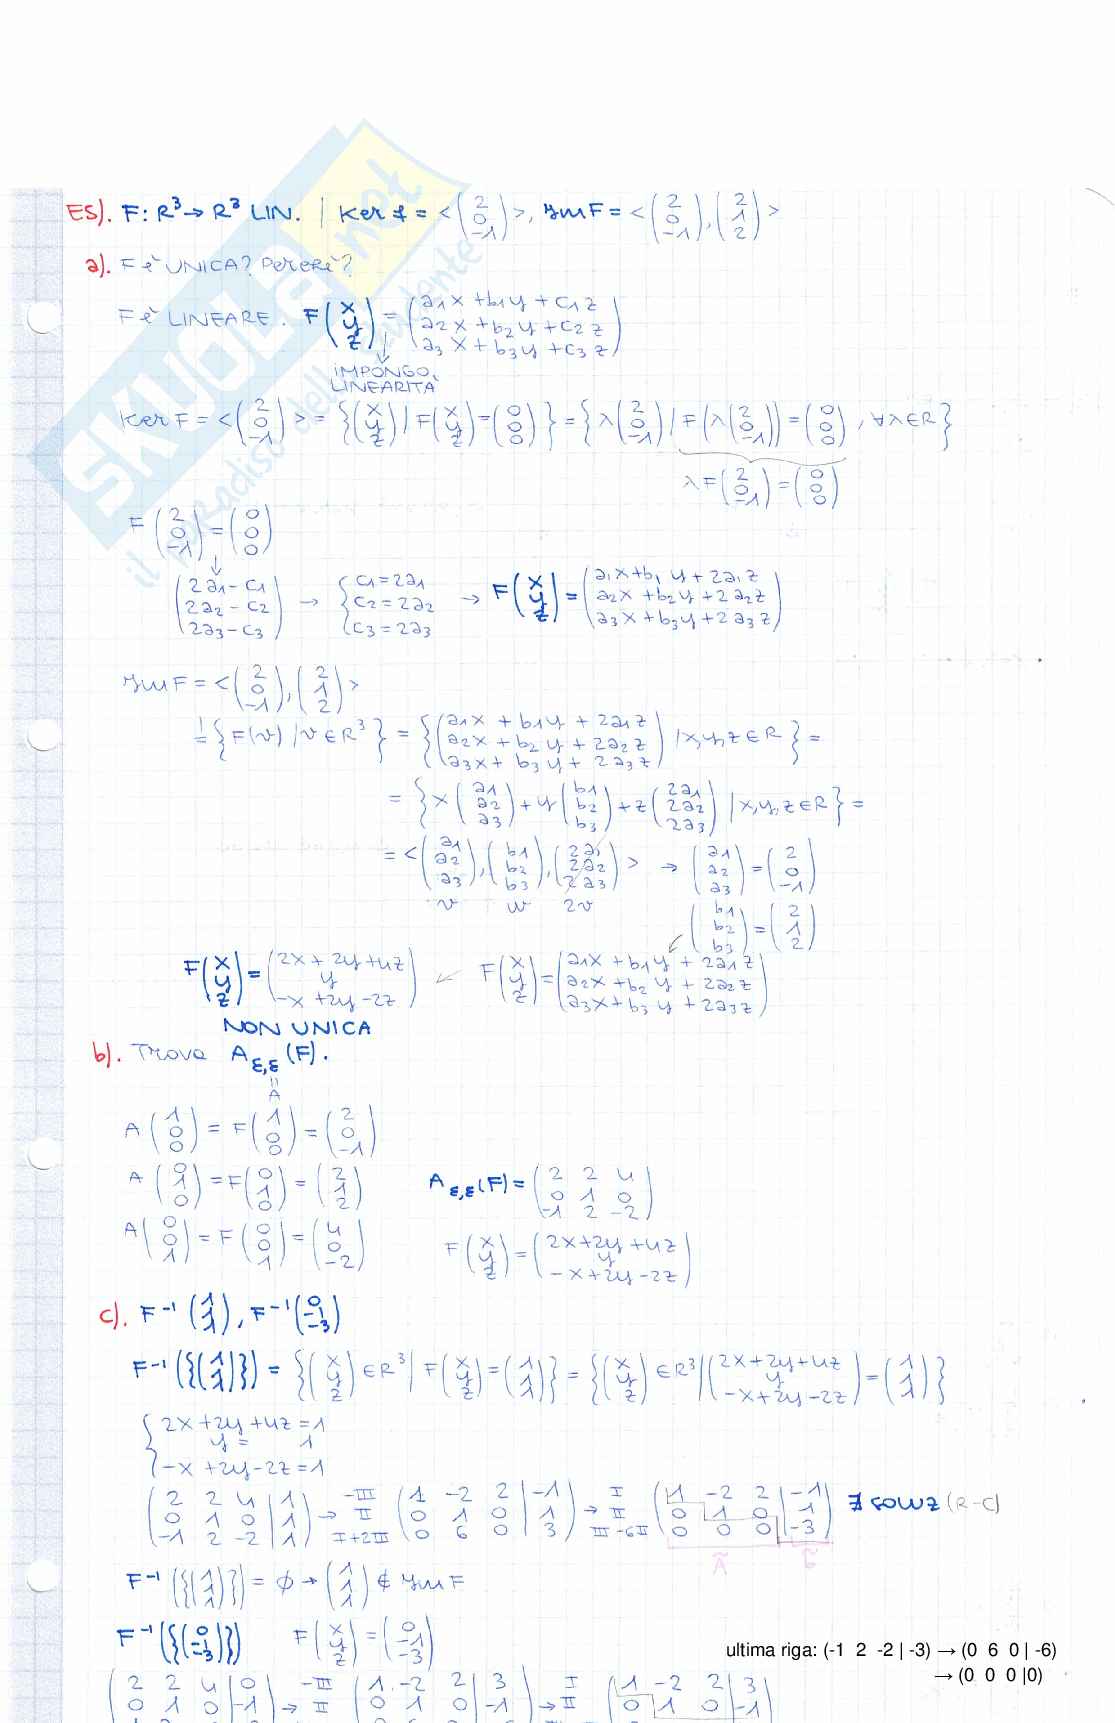 ES). F: R³→ R³ LIN. | Ker f = <(2 0 -1)>, ImF = <(2 0 -1), (2 1 2)>
a). F è UNICA? PERCHÈ?
F è LINEARE. F(x y z) = (a1x + b1y + c1z
a2x + b2y + c2z
a3x + b3y + c3z)
IMPONGO
LINEARITÀ
Ker F = <(2 0 -1)> = {(x y z) | F(x y z) = (0 0 0)} = {λ(2 0 -1) | F(λ(2 0 -1)) = (0 0 0), ∀λ∈R}
λF(2 0 -1) = (0 0 0)
F(2 0 -1) = (0 0 0)
(2a1 - c1
2a2 - c2
2a3 - c3) → {c1 = 2a1
c2 = 2a2
c3 = 2a3 → F(x y z) = (a1x + b1y + 2a1z
a2x + b2y + 2a2z
a3x + b3y + 2a3z)
ImF = <(2 0 -1), (2 1 2)>
= {F(v) | v∈R³} = {(a1x + b1y + 2a1z
a2x + b2y + 2a2z
a3x + b3y + 2a3z) | x,y,z∈R} =
= {x(a1 a2 a3) + y(b1 b2 b3) + z(2a1 2a2 2a3) | x,y,z∈R} =
= <(a1 a2 a3), (b1 b2 b3), (2a1 2a2 2a3)> → (a1 a2 a3) = (2 0 -1)
v w 2v
(b1 b2 b3) = (2 1 2)
F(x y z) = (2x + 2y + 4z
y
-x + 2y - 2z) ← F(x y z) = (a1x + b1y + 2a1z
a2x + b2y + 2a2z
a3x + b3y + 2a3z)
NON UNICA
b). Trova A ε,ε (F).
= A
A(1 0 0) = F(1 0 0) = (2 0 -1)
A(0 1 0) = F(0 1 0) = (2 1 2)
A ε,ε (F) = (2 2 4
0 1 0
-1 2 -2)
A(0 0 1) = F(0 0 1) = (4 0 -2)
F(x y z) = (2x + 2y + 4z
y
-x + 2y - 2z)
c). F⁻¹(1 1 1), F⁻¹(0 -1 -3)
F⁻¹({(1 1 1)}) = {(x y z) ∈R³ | F(x y z) = (1 1 1)} = {(x y z) ∈R³ | (2x + 2y + 4z
y
-x + 2y - 2z) = (1 1 1)}
{2x + 2y + 4z = 1
y = 1
-x + 2y - 2z = 1
(2 2 4 | 1
0 1 0 | 1
-1 2 -2 | 1) → -III
II
I+2III (1 -2 2 | -1
0 1 0 | 1
0 6 0 | 3) → I
II
III-6II (1 -2 2 | -1
0 1 0 | 1
0 0 0 | -3) ∄ SOLUZ (R-C)
Ã b̃
F⁻¹({(1 1 1)}) = ∅ → (1 1 1) ∉ ImF
F⁻¹({(0 -1 -3)}) F(x y z) = (0 -1 -3)
ultima riga: (-1 2 -2 | -3) → (0 6 0 | -6)
→ (0 0 0 |0)
(2 2 4 | 0
0 1 0 | -1 → -III
II (1 -2 2 | 3
0 1 0 | -1 → I
II (1 -2 2 | 3
0 1 0 | -1
SKUOLA.net
il paradiso dello studente